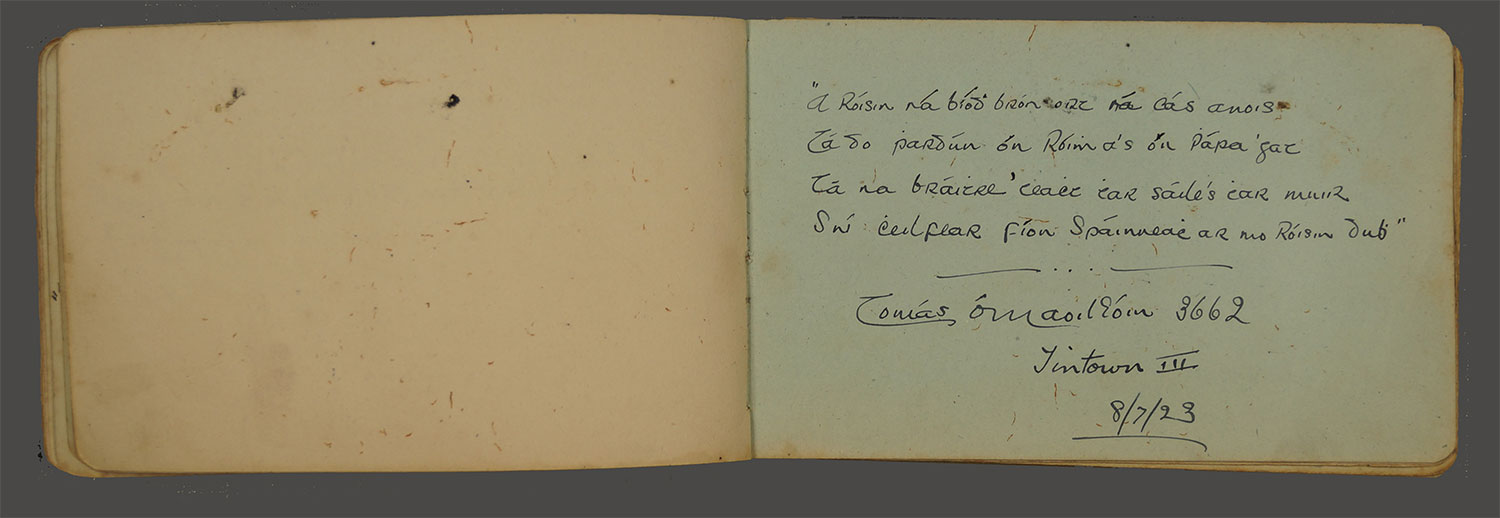 "A Róisín ná bíoḋ brón ort ná cás anois
Tá do ṗardún ón Róiṁ a's ón bPápa 'gat
Tá na bráiṫre 'teaċt ṫar sáile's ṫar muir
S ní ċeilfear fíon Spáinneaċ ar mo Róisín Duḃ"
Tomás Ó Maoileóin 3662
Tintown III
8/7/23